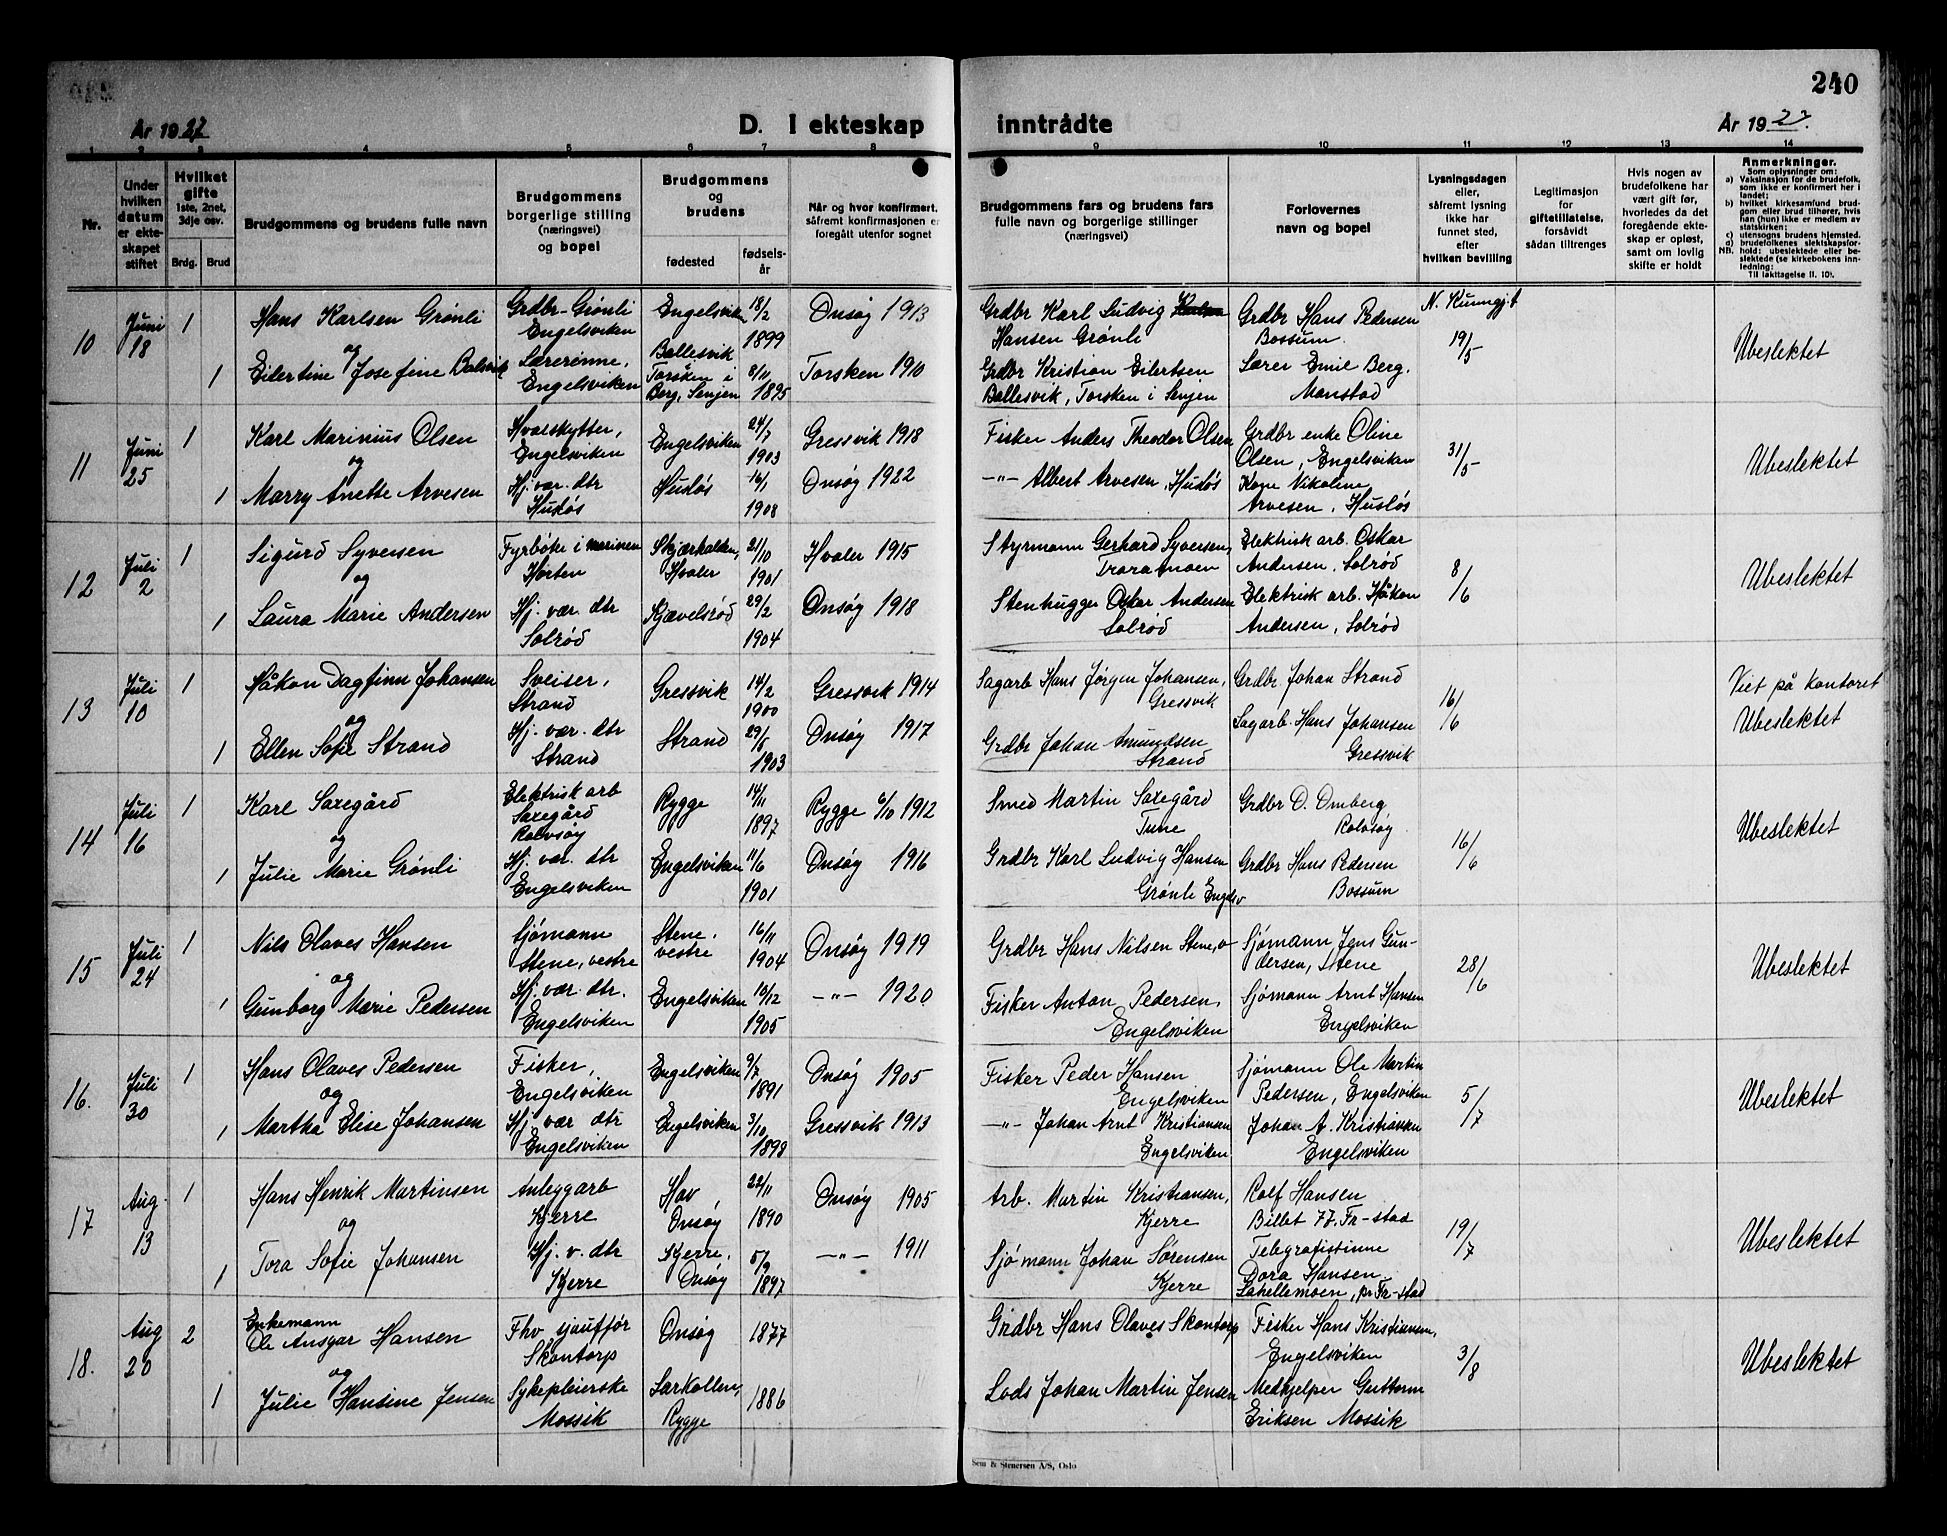 240
År 1927
D. I ekteskap inntrådte
År 1927.
1 2 3 4 5 6 7 8 9 10 11 12 13 14
Nr.
Under hvilken datum er ekte-skapet stiftet
Hvilket gifte 1ste, 2net, 3dje osv.
Brdg. Brud
Brudgommens og brudens fulle navn
Brudgommens borgerlige stilling (næringsvei) og bopel
Brudgommens og brudens
fødested
fødsels-år
Når og hvor konfirmert, såfremt konfirmasjonen er foregått utenfor sognet
Brudgommens fars og brudens fars fulle navn og borgerlige stillinger (næringsvei)
Forlovernes navn og bopel
Lysningsdagen eller, såfremt lysning ikke har funnet sted, efter hvilken bevilling
Legitimasjon for giftetillatelse, forsåvidt sådan tiltrenges
Hvis nogen av brudefolkene har vært gift før, hvorledes da det foregående ekte-skap er opløst, samt om lovlig skifte er holdt
Anmerkninger.
Som oplysninger om:
a) Vaksinasjon for de brudefolk, som ikke er konfirmert her i landet;
b) hvilket kirkesamfund brud-gom eller brud tilhører, hvis han (hun) ikke er medlem av statskirken;
c) utensogns brudens hjemsted.
d) brudefolkenes slektskapsfor-hold: ubeslektede eller be-slektede (se kirkebokens inn-ledning:
NB. Til iakttagelse II. 10).
10 Juni 18 1 Hans Karlsen Grønli Grdbr-Grønli Engelsviken Engelsviken 18/2 1899 Onsøy 1913 Grdbr Karl Ludvig Hansen Grønli Grdbr Hans Pedersen Bossum N. Kunngj.t 19/5 Ubeslektet
og
1 Eilertine Josefine Balsvik Lærerinne, Engelsviken Ballesvik Torsken i Berg, Senjen 8/11 1895 Torsken 1910 Grdbr Kristian Eilertsen Ballesvik, Torsken i Senjen Lærer Emil Berg. Manstad
11 Juni 25 1 Karl Marinius Olsen Hvalskytter, Engelsviken Engelsviken 24/7 1903 Gressvik 1918 Fisker Anders Theodor Olsen Grdbr enke Oline Olsen, Engelsviken 31/5 Ubeslektet
og
1 Marry Anette Arvesen Hj. vær. dtr Husløs Husløs 16/1 1908 Onsøy 1922 -"- Albert Arvesen, Husløs Kone Nikoline Arvesen, Husløs
12 Juli 2 1 Sigurd Syversen Fyrbøte i marinen Horten Skjærhalden, Hvaler 21/10 1901 Hvaler 1915 Styrmann Gerhard Syversen, Elektrisk arb. Oskar Andersen, Solrød 8/6 Ubeslektet
og
1 Laura Marie Andersen Hj. vær. dtr Solrød Kjævelsrød 29/2 1904 Onsøy 1918 Stenhugger Oskar Andersen Solrød Elektrisk arb. Håkon Andersen, Solrød
13 Juli 10 1 Håkon Dagfinn Johansen Sveiser, Strand Gressvik 14/2 1900 Gressvik 1914 Sagarb Hans Jørgen Johansen, Gressvik Grdbr Johan Strand 16/6 Viet på kontoret Ubeslektet
og
1 Ellen Sofie Strand Hj. vær. dtr Strand Strand 1903 Onsøy 1917 Grdbr Johan Amundsen Strand Sagarb. Hans Johansen Gressvik
14 Juli 16 1 Karl Saxegård Elektrisk arb Saxegård Rolvsøy Rygge 14/11 1897 Rygge 6/10 1912 Smed Martin Saxegård Tune Grdbr O. Omberg Rolvsøy 16/6 Ubeslektet
og
1 Julie Marie Grønli Hj. vær. dtr Engelsviken Engelsviken 11/6 1901 Onsøy 1916 Grdbr Karl Ludvig Hansen Grønli Engelsv Grdbr Hans Pedersen Bossum
15 Juli 24 1 Nils Olaves Hansen Sjømann Stene, vestre Stene, vestre 16/11 1904 Onsøy 1919 Grdbr Hans Nilsen Stene, v Sjømann Jens Gun-dersen, Stene 28/6 Ubeslektet
og
1 Gunborg Marie Pedersen Hj. vær. dtr. Engelsviken Engelsviken 10/12 1905 -"- 1920 Fisker Anton Pedersen, Engelsviken Sjømann Arnt Hansen Engelsviken
16. Juli 30 1 Hans Olaves Pedersen Fisker, Engelsviken Engelsviken 9/7 1891 Onsøy 1905 Fisker Peder Hansen Engelsviken Sjømann Ole Martin Pedersen, Engelsviken 5/7 Ubeslektet
og
1 Martha Elise Johansen Hj. vær dtr Engelsviken Engelsviken 3/10 1898 Gressvik 1913 -"- Johan Arnt Kristiansen Engelsviken Johan A. Kristiansen Engelsviken
17 Aug 13 1 Hans Henrik Martinsen Anleggarb Kjerre Hav Onsøy 22/11 1890 Onsøy 1905 Arb. Martin Kristiansen, Kjerre Rolf Hansen Billet 77. Fr-stad 19/7 Ubeslektet
og
1 Tora Sofie Johansen Hj. v. dtr Kjerre Kjerre, Onsøy 5/9 1897 -"- 1911 Sjømann Johan Sørensen Kjerre Telegrafistinne Dora Hansen Lahellemoen, pr Fr-stad
18. Aug 20 2 Enkemann Ole Ansgar Hansen Fhv sjauffør Skontorp Onsøy 1877 Grdbr Hans Olaves Skontorp Fisker Hans Kristiansen, Engelsviken 3/8 Ubeslektet
og
1 Julie Hansine Jensen Sykepleierske Mossik Larkollen, Rygge 1886 Lods Johan Martin Jensen Medhjelper Guttorm Eriksen Mossik
Sem & Stenersen A/S, Oslo